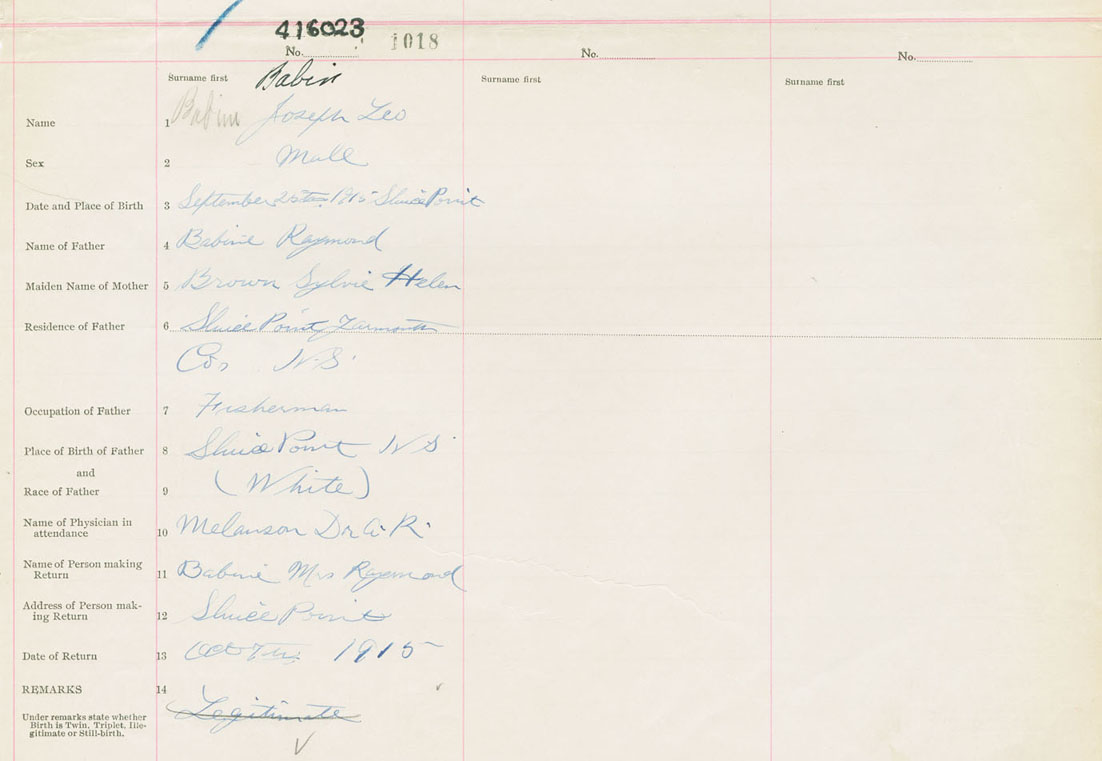 416023 1018
No. No. No.
Surname first Babin Surname first Surname first
Name 1 Babin Joseph Leo
Sex 2 Male
Date and Place of Birth 3 September 25th 1915 Sluice Point
Name of Father 4 Babine Raymond
Maiden Name of Mother 5 Brown Sylvie Helen
Residence of Father 6 Sluice Point Yarmouth
Co. N.S.
Occupation of Father 7 Fisherman
Place of Birth of Father 8 Sluice Point N S
and
Race of Father 9 (White)
Name of Physician in
attendance 10 Melanson Dr. A. R.
Name of Person making
Return 11 Babine Mrs Raymond
Address of Person mak-
ing Return 12 Sluice Point
Date of Return 13 Oct 7th 1915
REMARKS 14
Under remarks state whether
Birth is Twin, Triplet, Ille-
gitimate or Still-birth.
Legitimate